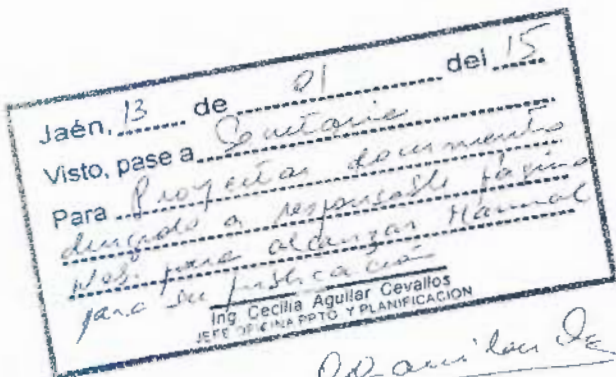 Jaén, 13 de 01 del 15
Visto, pase a Secretaria
Para Proyectar documento
dirigido a responsable página
Web para alcanzar Manual
para su publicación
Ing Cecilia Aguilar Cevallos
JEFE OFICINA PPTO Y PLANIFICACION